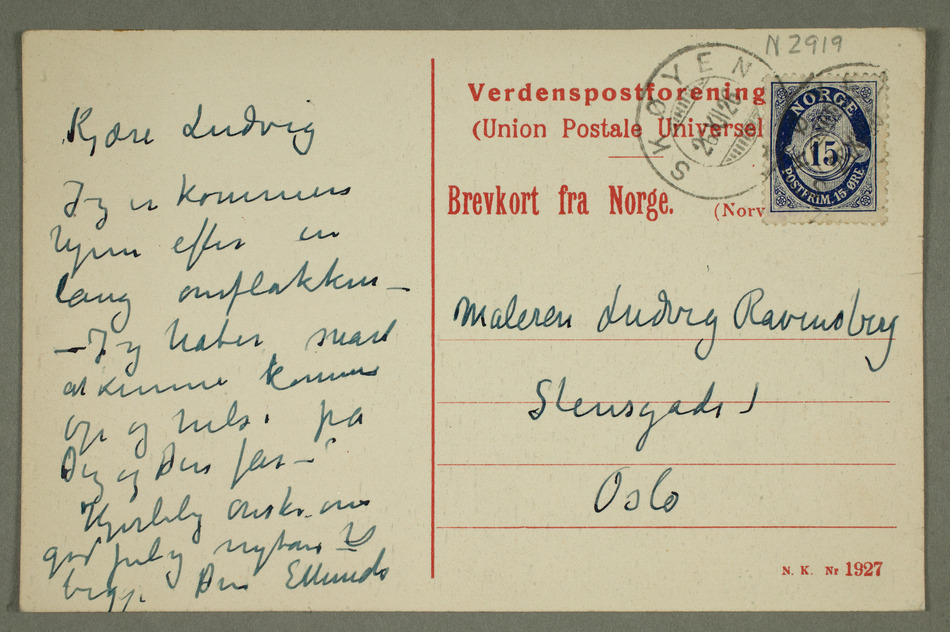 N 2919
SKØYEN
26 XII 26
NORGE
15
POSTFRIM. 15 ØRE
Verdenspostforening
(Union Postale Universel
Brevkort fra Norge. (Norv
Kjære Ludvig
Jeg er kommen
hjem efter en
lang omflakken –
– Jeg håber snart
at kunne komme
op og hilse på
Dig og Din far –
Hjertelig ønske om
god jul og nytår til
begge Din EMunch
Maleren Ludvig Ravensberg
Stensgade 1
Oslo
N. K. Nr 1927